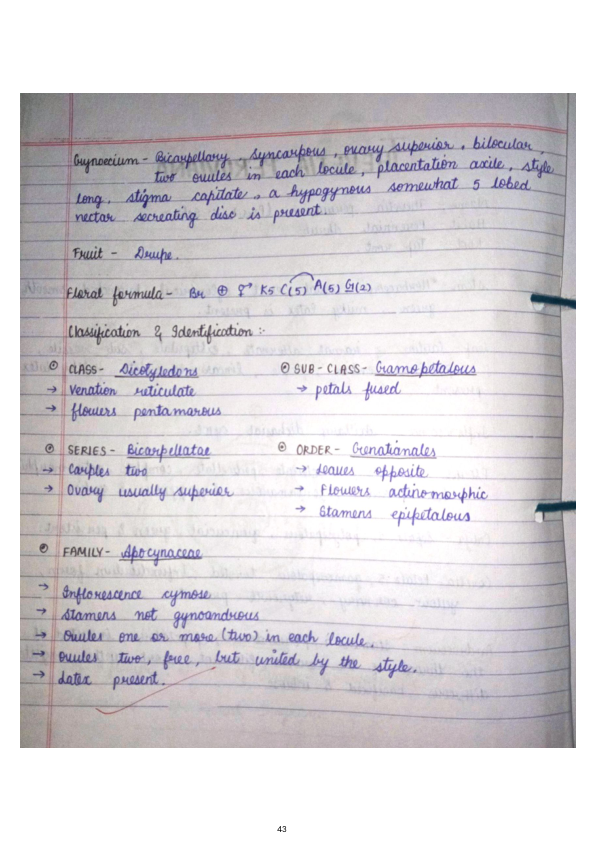 Gynoecium - Bicarpellary, syncarpous, ovary superior, bilocular,
two ovules in each locule, placentation axile, style
long, stigma capitate, a hypogynous somewhat 5 lobed
nectar secreating disc is present.
Fruit - Drupe.
Floral formula - Br ⊕ ⚥ K5 C(5) A(5) G(2)
Classification & Identification :-
⊙ CLASS- Dicotyledons
→ Venation reticulate
→ flowers pentamarous
⊙ SUB-CLASS- Gamopetalous
→ petals fused
⊙ SERIES- Bicarpellatae
→ Carples two
→ Ovary usually superior
⊙ ORDER- Genatianales
→ Leaves opposite
→ Flowers actinomorphic
→ Stamens epipetalous
⊙ FAMILY- Apocynaceae
→ Inflorescence cymose
→ Stamens not gynoandrous
→ Ovules one or more (two) in each locule.
→ ovules two, free, but united by the style.
→ Latex present.
43